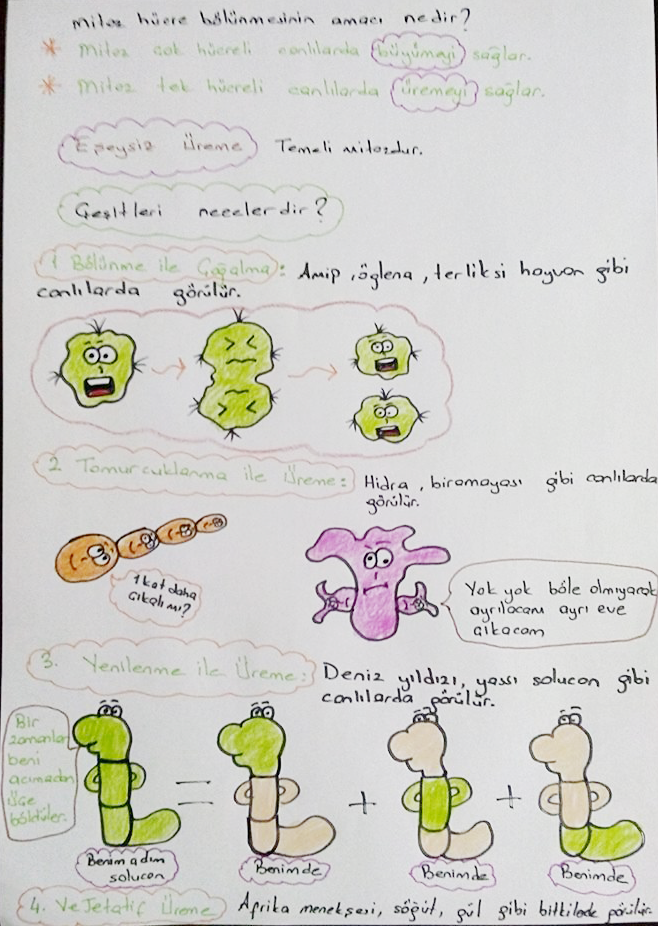 mitoz hücre bölünmesinin amacı nedir?
* Mitoz çok hücreli canlılarda büyümeyi sağlar.
* Mitoz tek hücreli canlılarda üremeyi sağlar.
Eşeysiz Üreme Temeli mitozdur.
Çeşitleri necelerdir?
1 Bölünme ile Çoğalma: Amip, öglena, terliksi hayvan gibi
canlılarda görülür.
2 Tomurcuklanma ile Üreme: Hidra, biramayası gibi canlılarda
görülür.
1 kat daha
çıkalımı?
Yok yok böle olmıyacak
ayrılacam ayrı eve
çıkacam
3. Yenilenme ile Üreme: Deniz yıldızı, yassı solucan gibi
canlılarda görülür.
Bir
zamanlar
beni
acımadan
üçe
böldüler.
=
+
+
Benim adım
solucan
Benimde
Benimde
Benimde
4. Vejetatif Üreme Afrika menekşesi, söğüt, gül gibi bitkilede görülür.